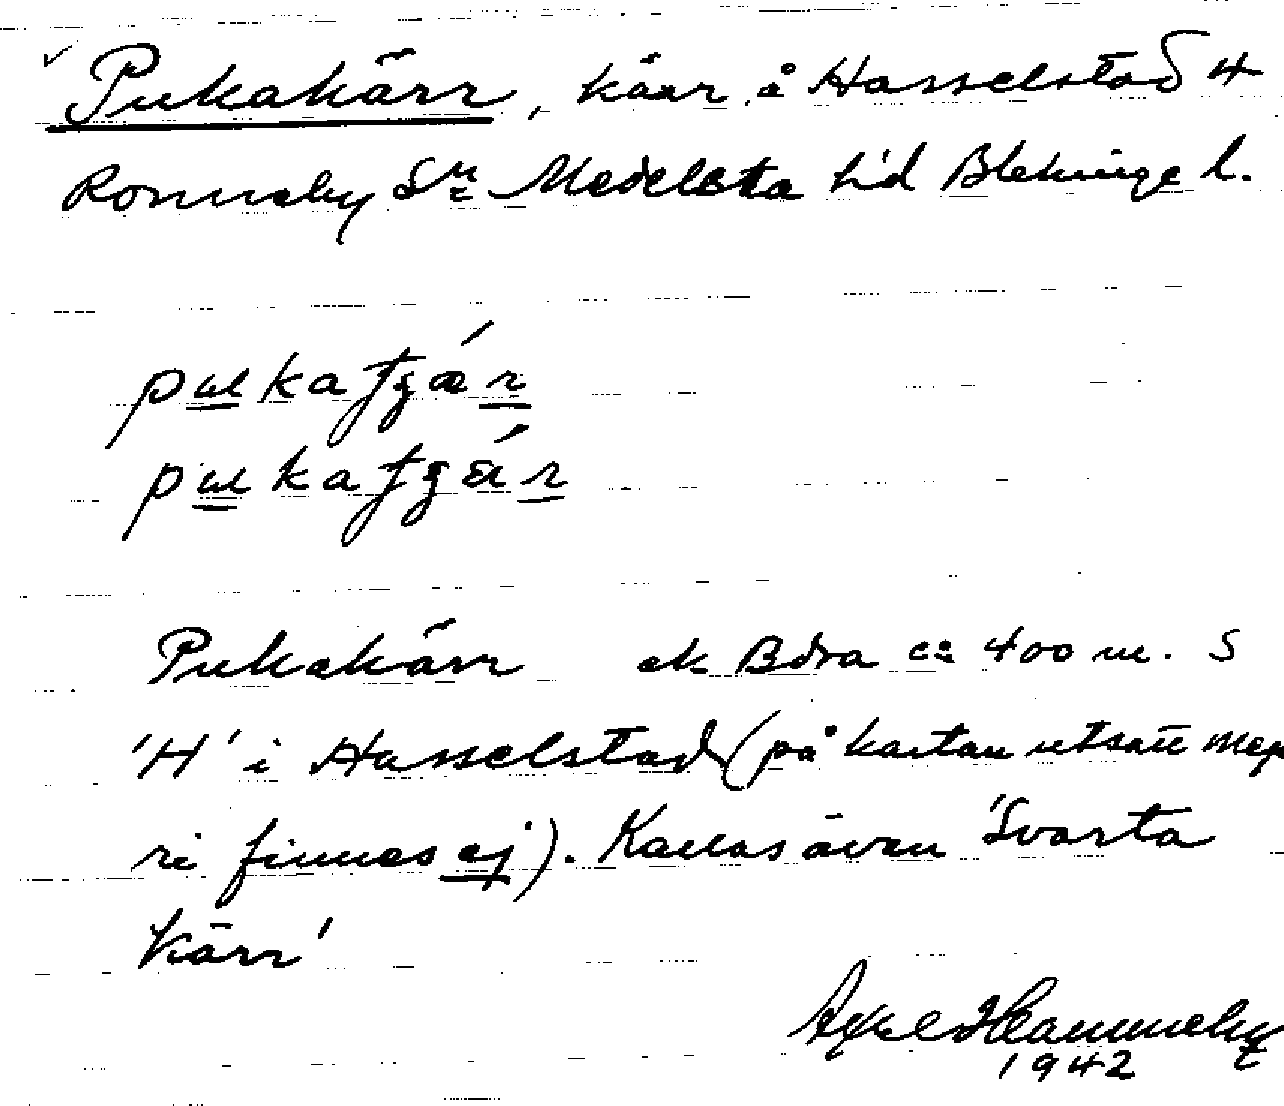 Pukakärr, kärr å Hasselstad 4
Ronneby Sn Medelsta h'd Blekinge l.
pukaʃgǽr
pukaʃgä́r
Pukakärr ek Bdra ca 400 m. S
'H' i Hasselstad (på kartan utsatt mep
ri finnes ej). Kallas även 'Svarta
Kärr'
Axel Hammeby
1942